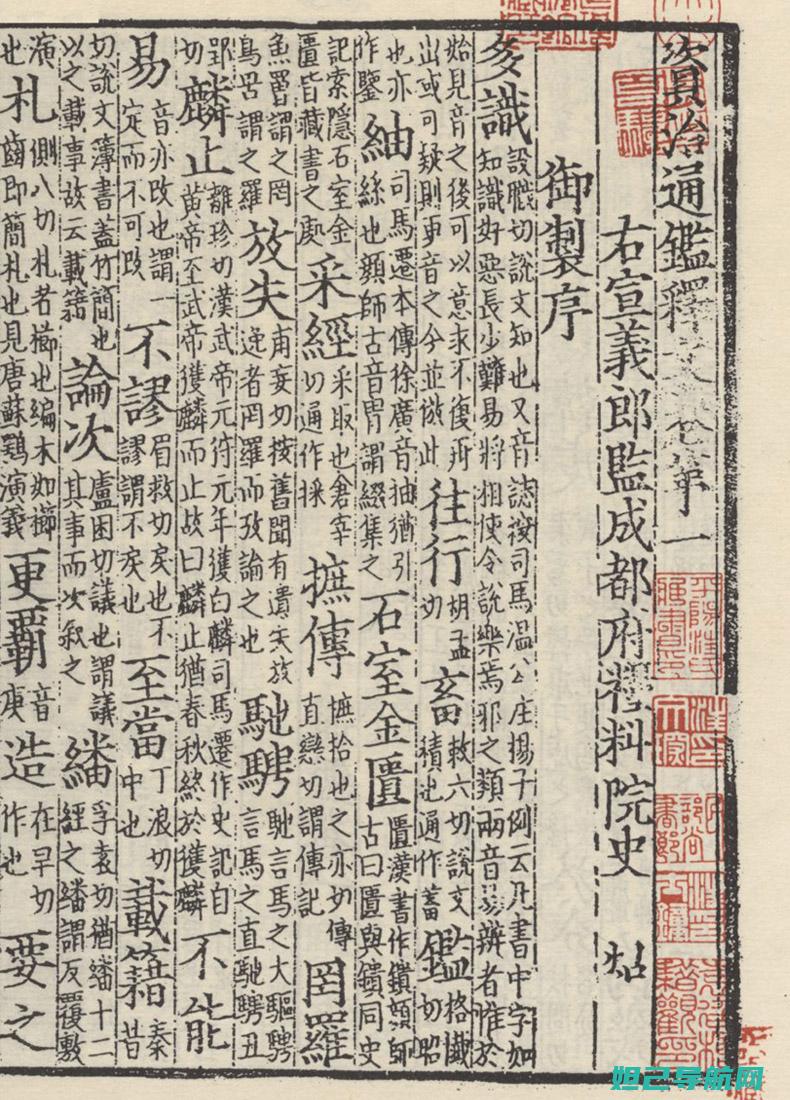 資治通鑑釋文卷第一
右宣義郎監成都府糧料院史 炤
御製序
多識 設職切說文知也又音誌按司馬溫公庄揚子例云凡書中字如知識好惡長少難易將相使令說樂焉邪之類兩音易辨者惟於
始見音之後可以意求不復再出或可疑則更音之今並倣此 往行 胡孟切 畜 敕六切說文積也通作蓄 鑑 格懺切昭
也亦作鑒 紬 司馬遷本傳徐廣音抽猶引絲也顏師古音冑謂綴集之 石室金匱 匱漢書作鐀顏師古曰匱與鐀同史
記索隱石室金匱皆藏書之處 采經 采取也倉宰切通作採 摭傳 摭拾也之亦切傳直戀切謂傳記 罔羅
魚罟謂之罔鳥罟謂之羅 放失 甫妄切按舊聞有遺失放逸者罔羅而攷論之也 馳騁 馳言馬之大驅騁言馬之直馳騁丑
郢切 麟止 離珍切漢武帝元狩元年獲白麟司馬遷作史記自黃帝至武帝獲麟而止故曰麟止猶春秋終於獲麟 不能
易 音亦改也謂一定而不可改 不謬 眉救切矣也不謬謂不矣也 至當 丁浪切中也 載籍 秦昔
切說文簿書蓋竹簡也以之載事故云載籍 論次 盧困切議也謂議其事而次敘之 繙 孚袁切猶繙十二經之繙謂反覆敷
演也 札 側八切札者櫛也編木如櫛齒即簡札也見唐蘇鶚演義 更霸 音庚 造 在早切作也 要之
妲己导航网